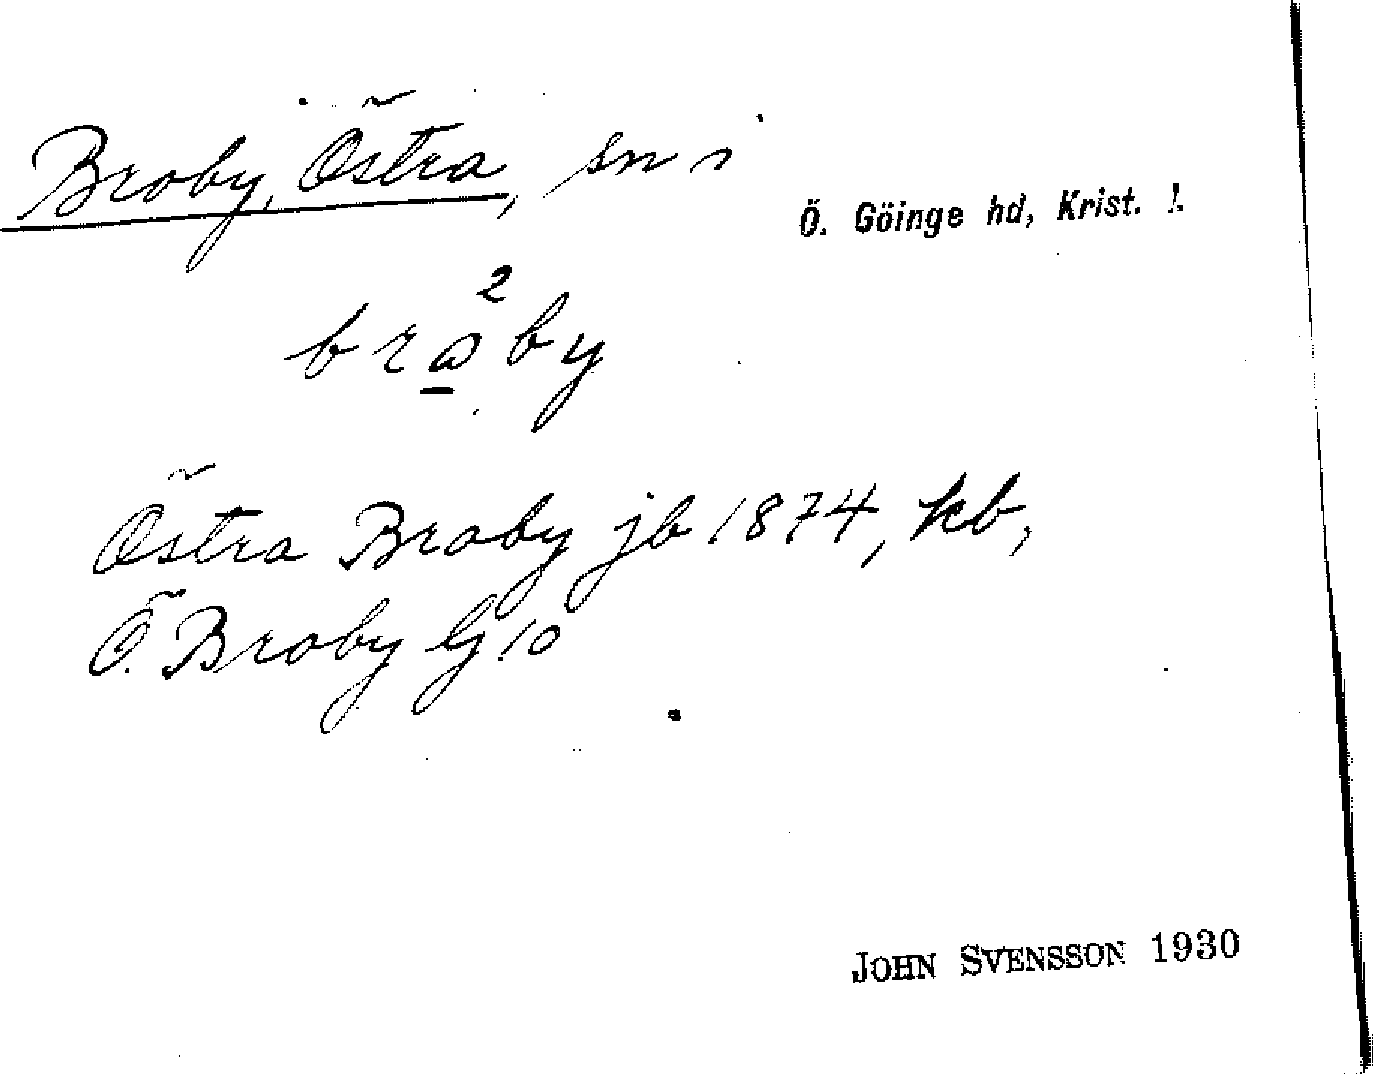 Broby, Östra, sn i Ö. Göinge hd, Krist. l.
bra²by
Östra Broby jb 1874, kb,
Ö. Broby Gj 10
JOHN SVENSSON 1930